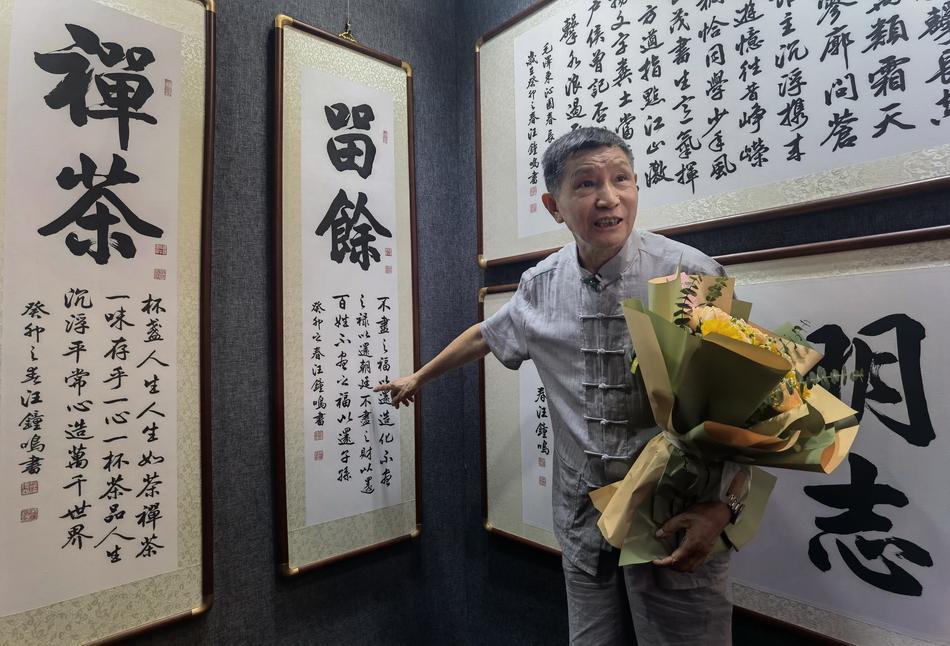 禪茶
杯盞人生人生如茶禪茶
一味存乎一心一杯茶品人生
沉浮平常心造萬千世界
癸卯之春汪鐘鳴書
畱餘
不盡之福以還造化不盡
之祿以還朝廷不盡之財以還
百姓不盡之福以還子孫
癸卯之春汪鐘鳴書
類霜天
寥廓問蒼
主沉浮攜来
遊憶往昔崢嶸
稠恰同學少年風
茂書生意氣揮
方遒指點江山激
揚文字糞土當
户侯曾記否
擊水浪遏
毛澤東沁園春長
歲在癸卯之春汪鐘鳴書
明志
春汪鐘鳴